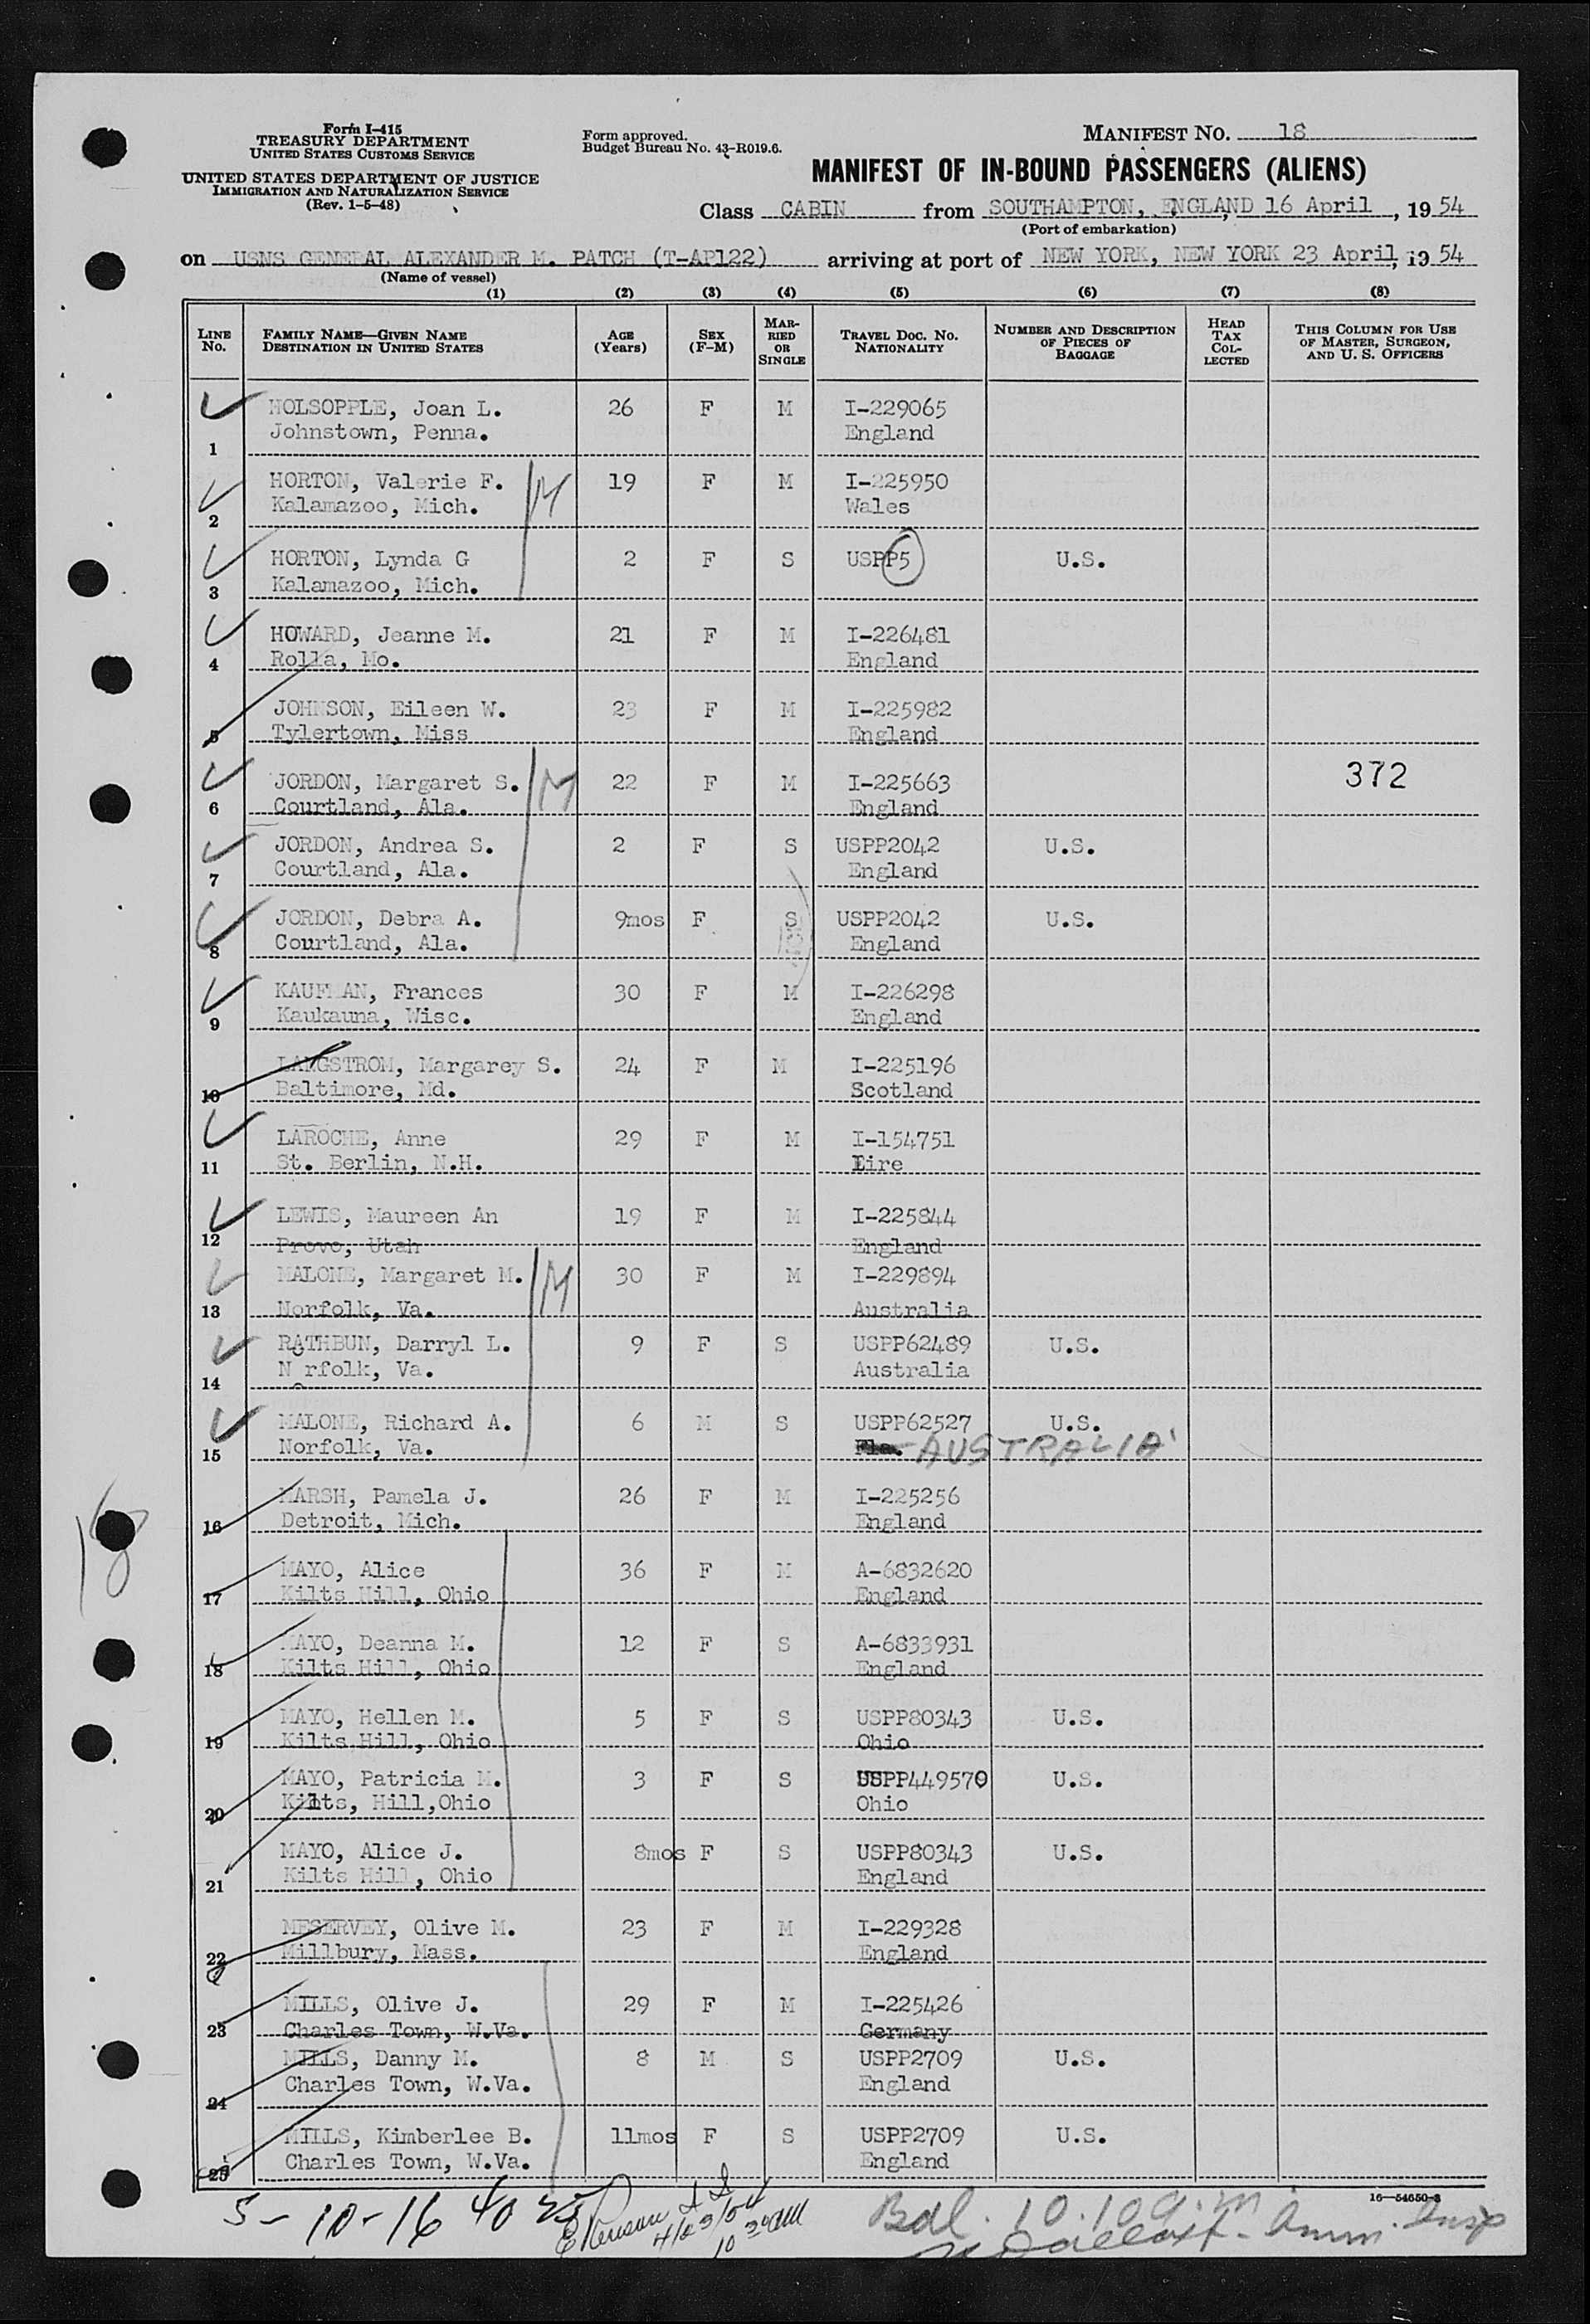 Form I-415
TREASURY DEPARTMENT
UNITED STATES CUSTOMS SERVICE
UNITED STATES DEPARTMENT OF JUSTICE
IMMIGRATION AND NATURALIZATION SERVICE
(Rev. 1-5-48)
Form approved.
Budget Bureau No. 43-R019.6.
MANIFEST NO. 18
MANIFEST OF IN-BOUND PASSENGERS (ALIENS)
Class CABIN from SOUTHAMPTON, ENGLAND 16 April, 1954
(Port of embarkation)
on USNS GENERAL ALEXANDER M. PATCH (T-AP122) arriving at port of NEW YORK, NEW YORK 23 April, 1954
(Name of vessel)
(1) (2) (3) (4) (5) (6) (7) (8)
LINE No. FAMILY NAME—GIVEN NAME DESTINATION IN UNITED STATES AGE (Years) SEX (F-M) MARRIED OR SINGLE TRAVEL DOC. NO. NATIONALITY NUMBER AND DESCRIPTION OF PIECES OF BAGGAGE HEAD TAX COLLECTED THIS COLUMN FOR USE OF MASTER, SURGEON, AND U. S. OFFICERS
HOLSOPPLE, Joan L. 26 F M I-229065
1 Johnstown, Penna. England
HORTON, Valerie F. M 19 F M I-225950
2 Kalamazoo, Mich. Wales
HORTON, Lynda G 2 F S USPP5 U.S.
3 Kalamazoo, Mich.
HOWARD, Jeanne M. 21 F M I-226481
4 Rolla, Mo. England
JOHNSON, Eileen W. 23 F M I-225982
5 Tylertown, Miss England
JORDON, Margaret S. M 22 F M I-225663 372
6 Courtland, Ala. England
JORDON, Andrea S. 2 F S USPP2042 U.S.
7 Courtland, Ala. England
JORDON, Debra A. 9mos F S USPP2042 U.S.
8 Courtland, Ala. England
KAUFMAN, Frances 30 F M I-226298
9 Kaukauna, Wisc. England
LANGSTROM, Margarey S. 24 F M I-225196
10 Baltimore, Md. Scotland
LAROCHE, Anne 29 F M I-154751
11 St. Berlin, N.H. Eire
LEWIS, Maureen An 19 F M I-225844
12 Provo, Utah England
MALONE, Margaret M. M 30 F M I-229894
13 Norfolk, Va. Australia
RATHBUN, Darryl L. 9 F S USPP62489 U.S.
14 N rfolk, Va. Australia
MALONE, Richard A. 6 M S USPP62527 U.S.
15 Norfolk, Va. Fla. AUSTRALIA
MARSH, Pamela J. 26 F M I-225256
16 Detroit, Mich. England
MAYO, Alice 36 F M A-6832620
17 Kilts Hill, Ohio England
MAYO, Deanna M. 12 F S A-6833931
18 Kilts Hill, Ohio England
MAYO, Hellen M. 5 F S USPP80343 U.S.
19 Kilts Hill, Ohio Ohio
MAYO, Patricia M. 3 F S USPP449570 U.S.
20 Kilts, Hill,Ohio Ohio
MAYO, Alice J. 8mos F S USPP80343 U.S.
21 Kilts Hill, Ohio England
MESERVEY, Olive M. 23 F M I-229328
22 Millbury, Mass. England
MILLS, Olive J. 29 F M I-225426
23 Charles Town, W.Va. Germany
MILLS, Danny M. 8 M S USPP2709 U.S.
24 Charles Town, W.Va. England
MILLS, Kimberlee B. 11mos F S USPP2709 U.S.
25 Charles Town, W.Va. England
18
16-54650-3
5-10-16 to 25
4/23/54
10 30 AM
Bdl. 10.10 a.m.
Imm. Insp